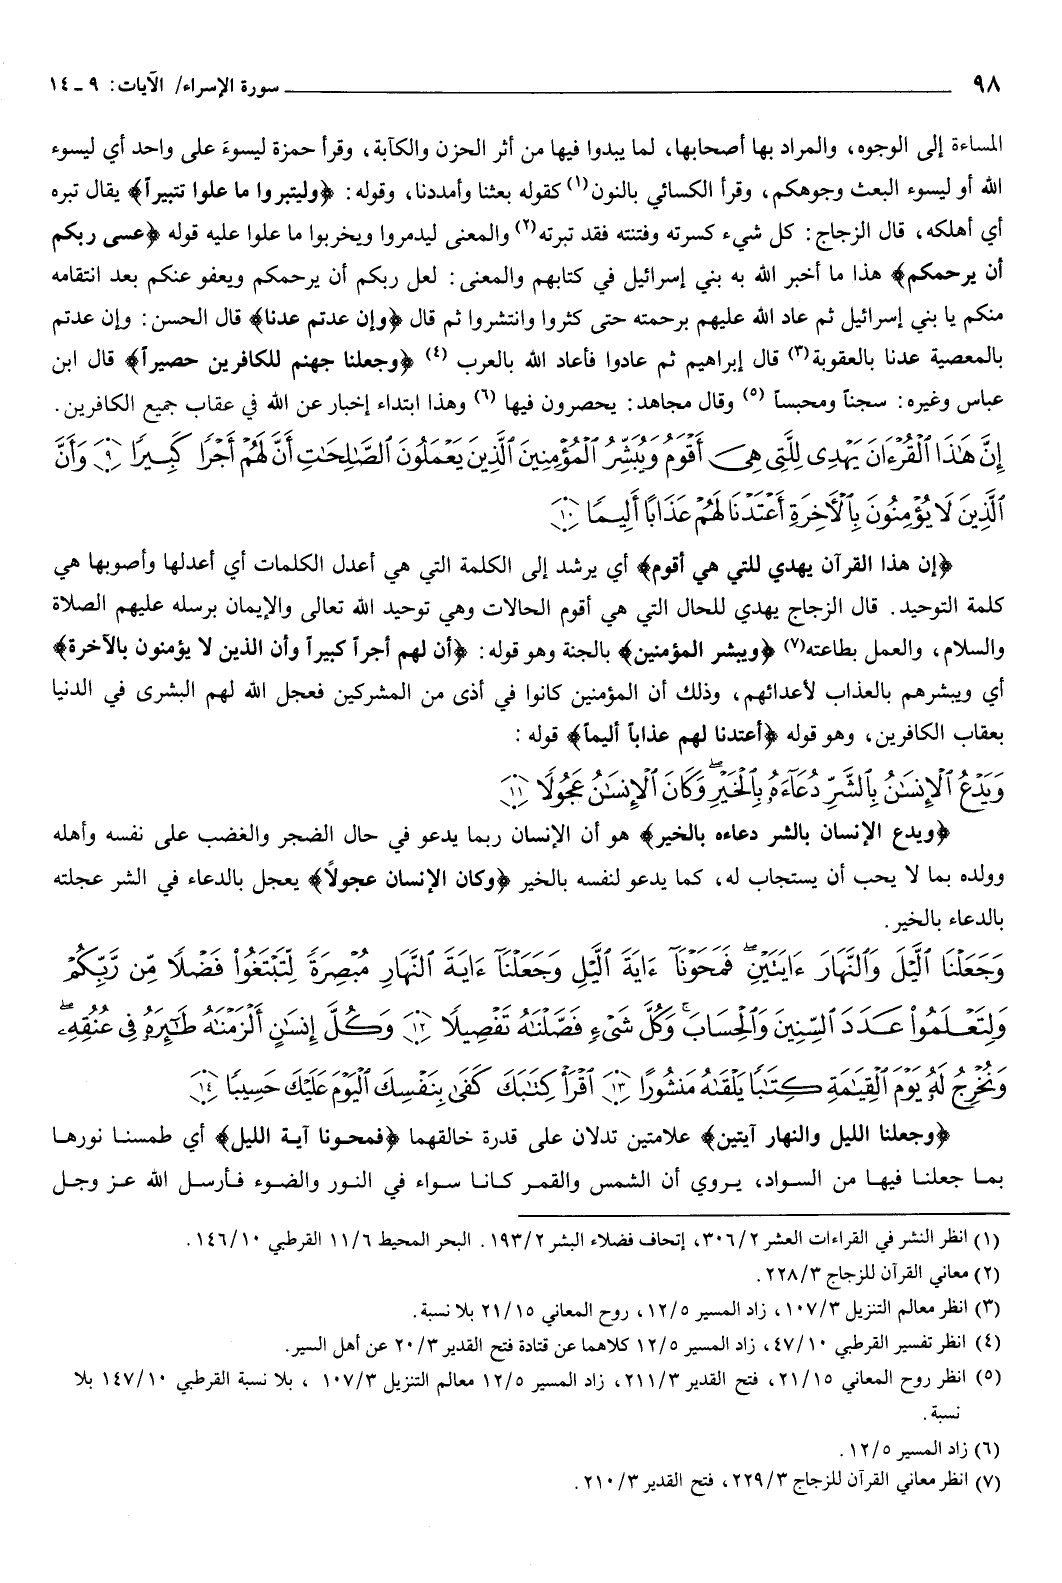 ٩٨ سورة الإسراء/ الآيات: ٩ ـ ١٤
المساءة إلى الوجوه، والمراد بها أصحابها، لما يبدوا فيها من أثر الحزن والكآبة، وقرأ حمزة ليسوءَ على واحد أي ليسوء
الله أو ليسوء البعث وجوهكم، وقرأ الكسائي بالنون(١) كقوله بعثنا وأمددنا، وقوله: ﴿وليتبروا ما علوا تتبيراً﴾ يقال تبره
أي أهلكه، قال الزجاج: كل شيء كسرته وفتنته فقد تبرته(٢) والمعنى ليدمروا ويخربوا ما علوا عليه قوله ﴿عسى ربكم
أن يرحمكم﴾ هذا ما أخبر الله به بني إسرائيل في كتابهم والمعنى: لعل ربكم أن يرحمكم ويعفو عنكم بعد انتقامه
منكم يا بني إسرائيل ثم عاد الله عليهم برحمته حتى كثروا وانتشروا ثم قال ﴿وإن عدتم عدنا﴾ قال الحسن: وإن عدتم
بالمعصية عدنا بالعقوبة(٣) قال إبراهيم ثم عادوا فأعاد الله بالعرب (٤) ﴿وجعلنا جهنم للكافرين حصيراً﴾ قال ابن
عباس وغيره: سجناً ومحبساً (٥) وقال مجاهد: يحصرون فيها (٦) وهذا ابتداء إخبار عن الله في عقاب جميع الكافرين.
إِنَّ هَٰذَا ٱلْقُرْءَانَ يَهْدِى لِلَّتِى هِىَ أَقْوَمُ وَيُبَشِّرُ ٱلْمُؤْمِنِينَ ٱلَّذِينَ يَعْمَلُونَ ٱلصَّٰلِحَٰتِ أَنَّ لَهُمْ أَجْرًا كَبِيرًا ٩ وَأَنَّ
ٱلَّذِينَ لَا يُؤْمِنُونَ بِٱلْءَاخِرَةِ أَعْتَدْنَا لَهُمْ عَذَابًا أَلِيمًا ١٠
﴿إن هذا القرآن يهدي للتي هي أقوم﴾ أي يرشد إلى الكلمة التي هي أعدل الكلمات أي أعدلها وأصوبها هي
كلمة التوحيد. قال الزجاج يهدي للحال التي هي أقوم الحالات وهي توحيد الله تعالى والإيمان برسله عليهم الصلاة
والسلام، والعمل بطاعته(٧) ﴿ويبشر المؤمنين﴾ بالجنة وهو قوله: ﴿أن لهم أجراً كبيراً وأن الذين لا يؤمنون بالآخرة﴾
أي ويبشرهم بالعذاب لأعدائهم، وذلك أن المؤمنين كانوا في أذى من المشركين فعجل الله لهم البشرى في الدنيا
بعقاب الكافرين، وهو قوله ﴿أعتدنا لهم عذاباً أليماً﴾ قوله :
وَيَدْعُ ٱلْإِنسَٰنُ بِٱلشَّرِّ دُعَآءَهُۥ بِٱلْخَيْرِ ۖ وَكَانَ ٱلْإِنسَٰنُ عَجُولًا ١١
﴿ويدع الإنسان بالشر دعاءه بالخير﴾ هو أن الإنسان ربما يدعو في حال الضجر والغضب على نفسه وأهله
وولده بما لا يحب أن يستجاب له، كما يدعو لنفسه بالخير ﴿وكان الإنسان عجولاً﴾ يعجل بالدعاء في الشر عجلته
بالدعاء بالخير.
وَجَعَلْنَا ٱلَّيْلَ وَٱلنَّهَارَ ءَايَتَيْنِ ۖ فَمَحَوْنَآ ءَايَةَ ٱلَّيْلِ وَجَعَلْنَآ ءَايَةَ ٱلنَّهَارِ مُبْصِرَةً لِّتَبْتَغُوا۟ فَضْلًا مِّن رَّبِّكُمْ
وَلِتَعْلَمُوا۟ عَدَدَ ٱلسِّنِينَ وَٱلْحِسَابَ ۚ وَكُلَّ شَىْءٍ فَصَّلْنَٰهُ تَفْصِيلًا ١٢ وَكُلَّ إِنسَٰنٍ أَلْزَمْنَٰهُ طَٰٓئِرَهُۥ فِى عُنُقِهِۦ ۖ
وَنُخْرِجُ لَهُۥ يَوْمَ ٱلْقِيَٰمَةِ كِتَٰبًا يَلْقَىٰهُ مَنشُورًا ١٣ ٱقْرَأْ كِتَٰبَكَ كَفَىٰ بِنَفْسِكَ ٱلْيَوْمَ عَلَيْكَ حَسِيبًا ١٤
﴿وجعلنا الليل والنهار آيتين﴾ علامتين تدلان على قدرة خالقهما ﴿فمحونا آية الليل﴾ أي طمسنا نورها
بما جعلنا فيها من السواد، يروي أن الشمس والقمر كانا سواء في النور والضوء فأرسل الله عز وجل
(١) انظر النشر في القراءات العشر ٣٠٦/٢، إتحاف فضلاء البشر ١٩٣/٢. البحر المحيط ١١/٦ القرطبي ١٤٦/١٠.
(٢) معاني القرآن للزجاج ٢٢٨/٣.
(٣) انظر معالم التنزيل ١٠٧/٣، زاد المسير ١٢/٥، روح المعاني ٢١/١٥ بلا نسبة.
(٤) انظر تفسير القرطبي ٤٧/١٠، زاد المسير ١٢/٥ كلاهما عن قتادة فتح القدير ٢٠/٣ عن أهل السير.
(٥) انظر روح المعاني ٢١/١٥، فتح القدير ٢١١/٣، زاد المسير ١٢/٥ معالم التنزيل ١٠٧/٣ ، بلا نسبة القرطبي ١٤٧/١٠ بلا
نسبة.
(٦) زاد المسير ١٢/٥.
(٧) انظر معاني القرآن للزجاج ٢٢٩/٣، فتح القدير ٢١٠/٣.